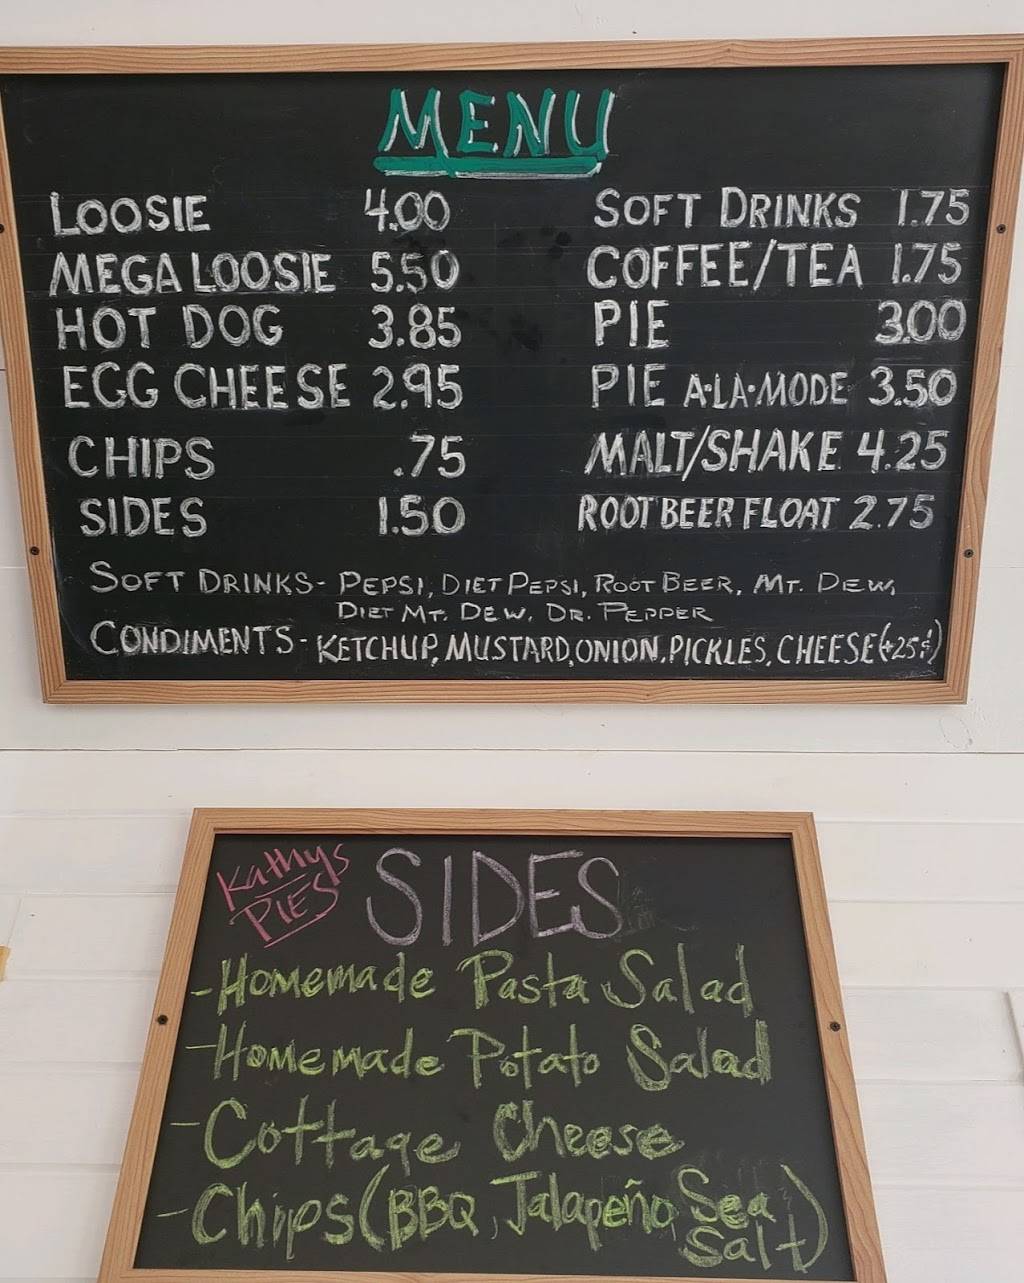 MENU
LOOSIE 4.00
MEGA LOOSIE 5.50
HOT DOG 3.85
EGG CHEESE 2.95
CHIPS .75
SIDES 1.50
SOFT DRINKS 1.75
COFFEE/TEA 1.75
PIE 3.00
PIE A·LA·MODE 3.50
MALT/SHAKE 4.25
ROOT BEER FLOAT 2.75
SOFT DRINKS- PEPSI, DIET PEPSI, ROOT BEER, MT. DEW,
DIET MT. DEW, DR. PEPPER
CONDIMENTS - KETCHUP, MUSTARD, ONION, PICKLES, CHEESE (+25¢)
Kathys
PIES
SIDES
-Homemade Pasta Salad
-Homemade Potato Salad
-Cottage Cheese
-Chips (BBQ, Jalapeño, Sea
Salt)